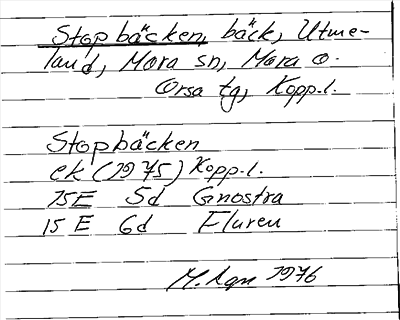 Stopbäcken, bäck, Utme-
land, Mora sn, Mora o.
Orsa tg, Kopp.l.
Stopbäcken
ek (1975) Kopp.l.
15E 5d Gnostra
15E 6d Fluren
1976